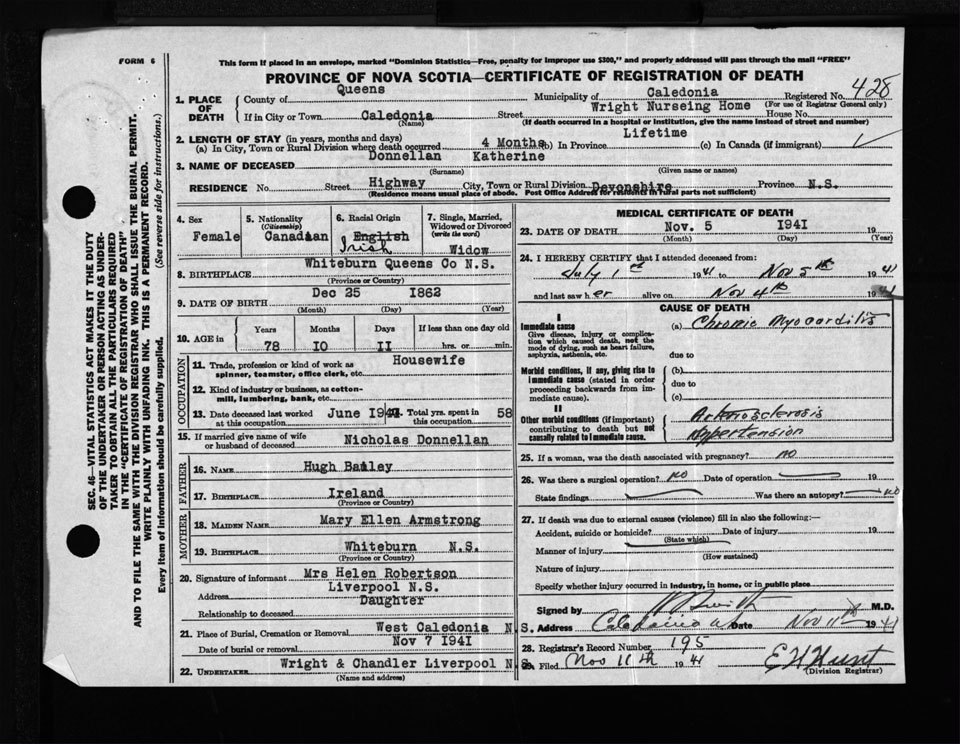 FORM 6
This form if placed in an envelope, marked "Dominion Statistics—Free, penalty for improper use $300," and properly addressed will pass through the mail "FREE"
PROVINCE OF NOVA SCOTIA—CERTIFICATE OF REGISTRATION OF DEATH
428
1. PLACE OF DEATH
County of Queens Municipality of Caledonia Registered No.
(For use of Registrar General only)
If in City or Town Caledonia Street Wright Nurseing Home House No.
(Name) (If death occurred in a hospital or institution, give the name instead of street and number)
2. LENGTH OF STAY (in years, months and days)
(a) In City, Town or Rural Division where death occurred 4 Months (b) In Province Lifetime (c) In Canada (if immigrant)
3. NAME OF DECEASED Donnellan Katherine
(Surname) (Given name or names)
RESIDENCE No. Street Highway City, Town or Rural Division Devonshire Province N.S.
(Residence means usual place of abode. Post Office Address for residents in rural parts not sufficient)
4. Sex Female
5. Nationality (Citizenship) Canadian
6. Racial Origin English Irish
7. Single, Married, Widowed or Divorced (write the word) Widow
8. BIRTHPLACE Whiteburn Queens Co N.S.
(Province or Country)
9. DATE OF BIRTH Dec 25 1862
(Month) (Day) (Year)
10. AGE in Years Months Days If less than one day old
78 10 11 hrs. or min.
OCCUPATION
11. Trade, profession or kind of work as spinner, teamster, office clerk, etc. Housewife
12. Kind of industry or business, as cotton-mill, lumbering, bank, etc.
13. Date deceased last worked at this occupation June 1941 Total yrs. spent in this occupation 58
15. If married give name of wife or husband of deceased Nicholas Donnellan
FATHER
16. NAME Hugh Bailey
17. BIRTHPLACE Ireland
(Province or Country)
MOTHER
18. MAIDEN NAME Mary Ellen Armstrong
19. BIRTHPLACE Whiteburn N.S.
(Province or Country)
20. Signature of informant Mrs Helen Robertson
Address Liverpool N.S.
Relationship to deceased Daughter
21. Place of Burial, Cremation or Removal West Caledonia N.S.
Date of burial or removal Nov 7 1941
22. UNDERTAKER Wright & Chandler Liverpool N.S.
(Name and address)
MEDICAL CERTIFICATE OF DEATH
23. DATE OF DEATH Nov. 5 1941 19
(Month) (Day) (Year)
24. I HEREBY CERTIFY that I attended deceased from:
July 1st 1941 to Nov 5th 1941
and last saw her alive on Nov 4th 1941
CAUSE OF DEATH
I
Immediate cause
Give disease, injury or complication which caused death, not the mode of dying, such as heart failure, asphyxia, asthenia, etc.
(a) Chronic Myocarditis
due to
Morbid conditions, if any, giving rise to immediate cause (stated in order proceeding backwards from immediate cause)
(b)
due to
(c)
II
Other morbid conditions (if important) contributing to death but not causally related to immediate cause.
Arteriosclerosis
Hypertension
25. If a woman, was the death associated with pregnancy? no
26. Was there a surgical operation? no Date of operation 19
State findings Was there an autopsy? no
27. If death was due to external causes (violence) fill in also the following:—
Accident, suicide or homicide? Date of injury 19
(State which)
Manner of injury
(How sustained)
Nature of injury
Specify whether injury occurred in industry, in home, or in public place
Signed by Smith M.D.
Address Caledonia Date Nov 11th 1941
28. Registrar's Record Number 195
29. Filed Nov 11th 1941 E H Hunt
(Division Registrar)
SEC. 46—VITAL STATISTICS ACT MAKES IT THE DUTY
OF THE UNDERTAKER OR PERSON ACTING AS UNDER-
TAKER TO OBTAIN ALL THE PARTICULARS REQUIRED
IN THE "CERTIFICATE OF REGISTRATION OF DEATH"
AND TO FILE THE SAME WITH THE DIVISION REGISTRAR WHO SHALL ISSUE THE BURIAL PERMIT.
WRITE PLAINLY WITH UNFADING INK. THIS IS A PERMANENT RECORD.
Every item of Information should be carefully supplied. (See reverse side for instructions.)